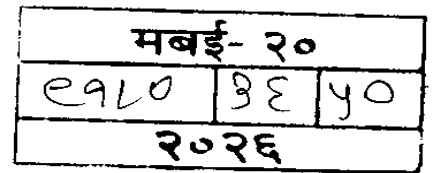 मबई- २०
९१८० ३६ ५०
२०२६